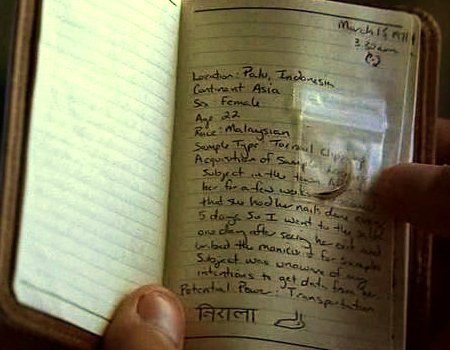 March 15, 1971
3:30 a.m.
Location: Palu, Indonesia
Continent Asia
Sex Female
Age 22
Race: Malaynsian
Sample Type: Toenail Clipping
Acquisition of Sample
Subject in the town
her for a few weeks
that she had her nails done every
5 days So I went to the
one day after seeing her exit and
bribed the manicurist for samples
Subject was unaware of my
intentions to get data from her
Potential Power: Transportation
निराला